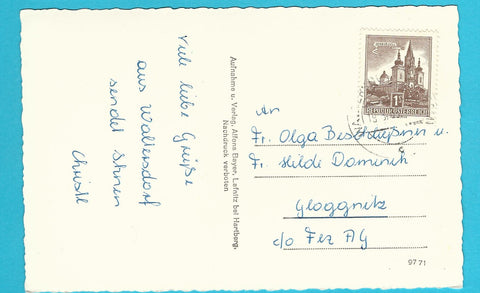 Viele liebe Grüße
aus Waltersdorf
sendet Ihnen
Christl
Aufnahme u. Verlag, Alfons Bayer, Lafnitz bei Hartberg.
Nachdruck verboten
1S
REPUBLIK ÖSTERREICH
An
Fr. Olga u.
Fr. Hilde Dominik
Gloggnitz
c/o Fez AG
9771